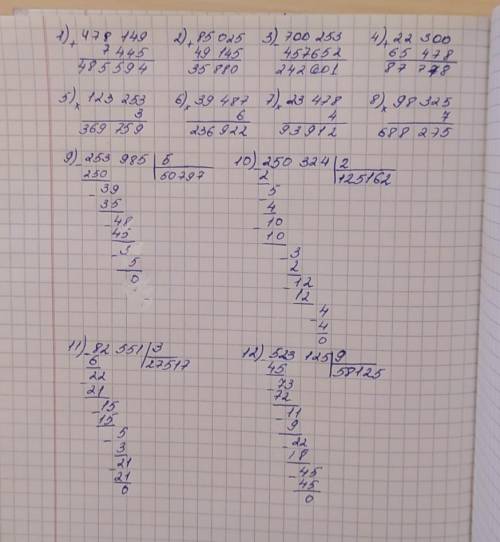 1) + 478 149   2) + 85 025   3) - 700 253   4) + 22 300
7 445   49 145   457652   65 478
485 594   35 880   242601   87 778
5) × 123 253   6) × 39 487   7) × 23 478   8) × 98 325
3   6   4   7
369 759   236 922   93 912   688 275
9) - 253 985 | 5   10) - 250 324 | 2
250 | 50797   2 | 125162
- 39   - 5
35   4
- 48   - 10
45   10
- 3   - 3
5   2
0   - 12
12
- 4
4
0
11) - 82 551 | 3   12) - 523 125 | 9
6 | 27517   45 | 58125
- 22   - 73
21   72
- 15   - 11
15   9
- 5   - 22
3   18
- 21   - 45
21   45
0   0